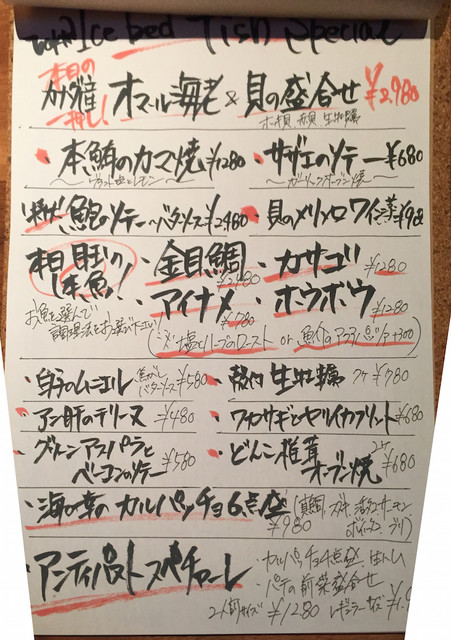 Ice bed Fish Special
本日の カナダ産 オマール海老 & 貝の盛合せ ¥2,980
一押し! ホッキ貝 赤貝 生牡蠣
・本鮪のカマ焼 ¥1280 ・サザエのソテー ¥680
〜ガーリックオーブン焼〜
鮑のソテー〜バターソース ¥2480 ・貝のメリメロワイン蒸 ¥98
本日 目玉の 1本魚! ・金目鯛 ¥2480 ・カサゴ ¥1280
・アイナメ ¥1780 ・ホウボウ ¥1280
お魚を選んで 調理法をお選び下さい!
(※塩とハーブのロースト or 魚介のアクアパッツァ +300)
・白子のムニエル 焦がしバターソース ¥580 ・殻付生牡蠣 2ケ ¥780
・アン肝のテリーヌ ¥480 ・ワカサギとヤリイカフリット ¥680
・グリーンアスパラと ベーコンのソテー ¥580 ・どんこ椎茸 オーブン焼 2ケ ¥680
・海の幸のカルパッチョ6点盛 ¥980 (真鯛、
・アンティパストスペチャーレ ・カルパッチョ4点盛、生ハム
パテの前菜盛合せ
2人前サイズ ¥1280 レギュラーサイズ